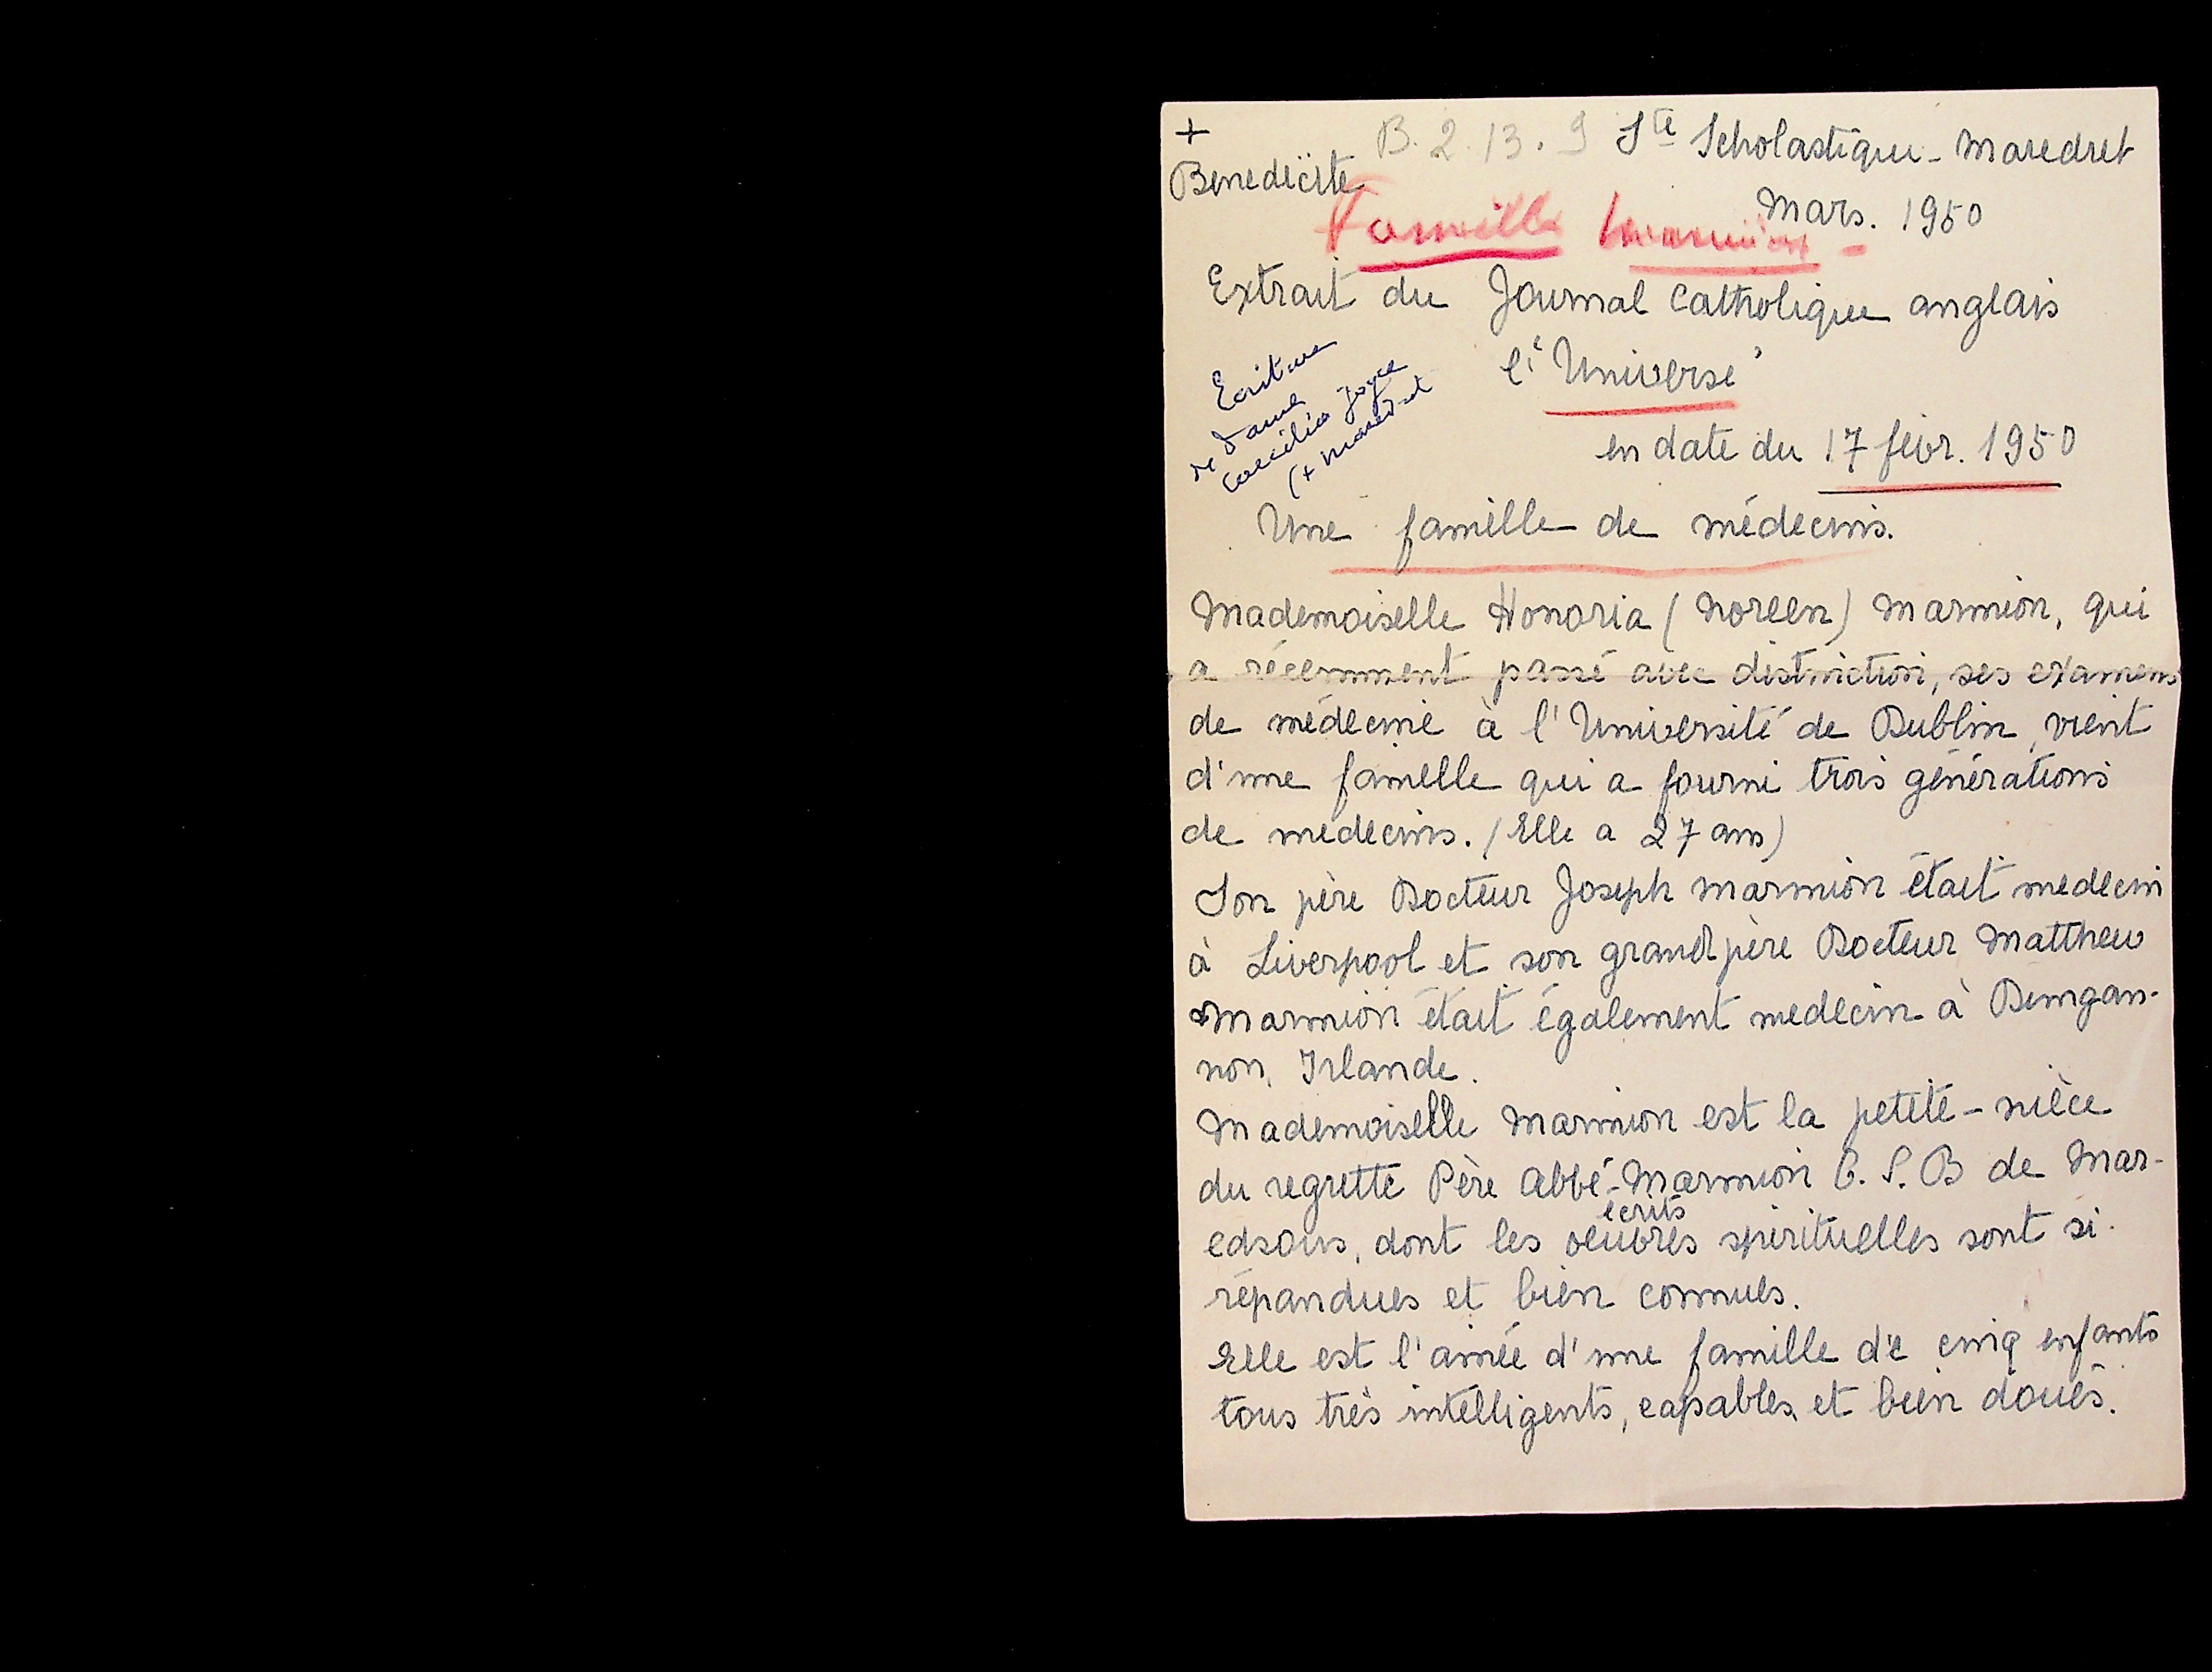 +
B. 2. 13. 9 Ste Scholastique - Maredret
Benedicite
Mars. 1950
Famille Marmion -
Extrait du Journal Catholique anglais
l'"Universe"
Ecriture
de Dame
Caecilia Joyce
(+ Maredret
en date du 17 févr. 1950
Une famille de médecins.
Mademoiselle Honoria (Noreen) Marmion, qui
a récemment passé avec distinction, ses examens
de médecine à l'Université de Dublin, vient
d'une famille qui a fourni trois générations
de medecins. (Elle a 27 ans)
Son père Docteur Joseph Marmion était medecin
à Liverpool et son grandpère Docteur Matthew
Marmion était également medecin à Dungan-
non, Irlande.
Mademoiselle Marmion est la petite-nièce
du regretté Père Abbé-Marmion O. S. B de Mar-
edsous, dont les oeuvres écrits spirituelles sont si
répandues et bien connues.
Elle est l'ainée d'une famille de cinq enfants
tous très intelligents, capables et bien doués.